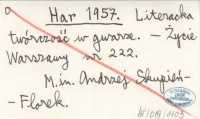 Har 1957. Literacka
twórczość w gwarze. – Życie
Warszawy nr 222.
M.in. Andrzej Skupień-
-Florek.